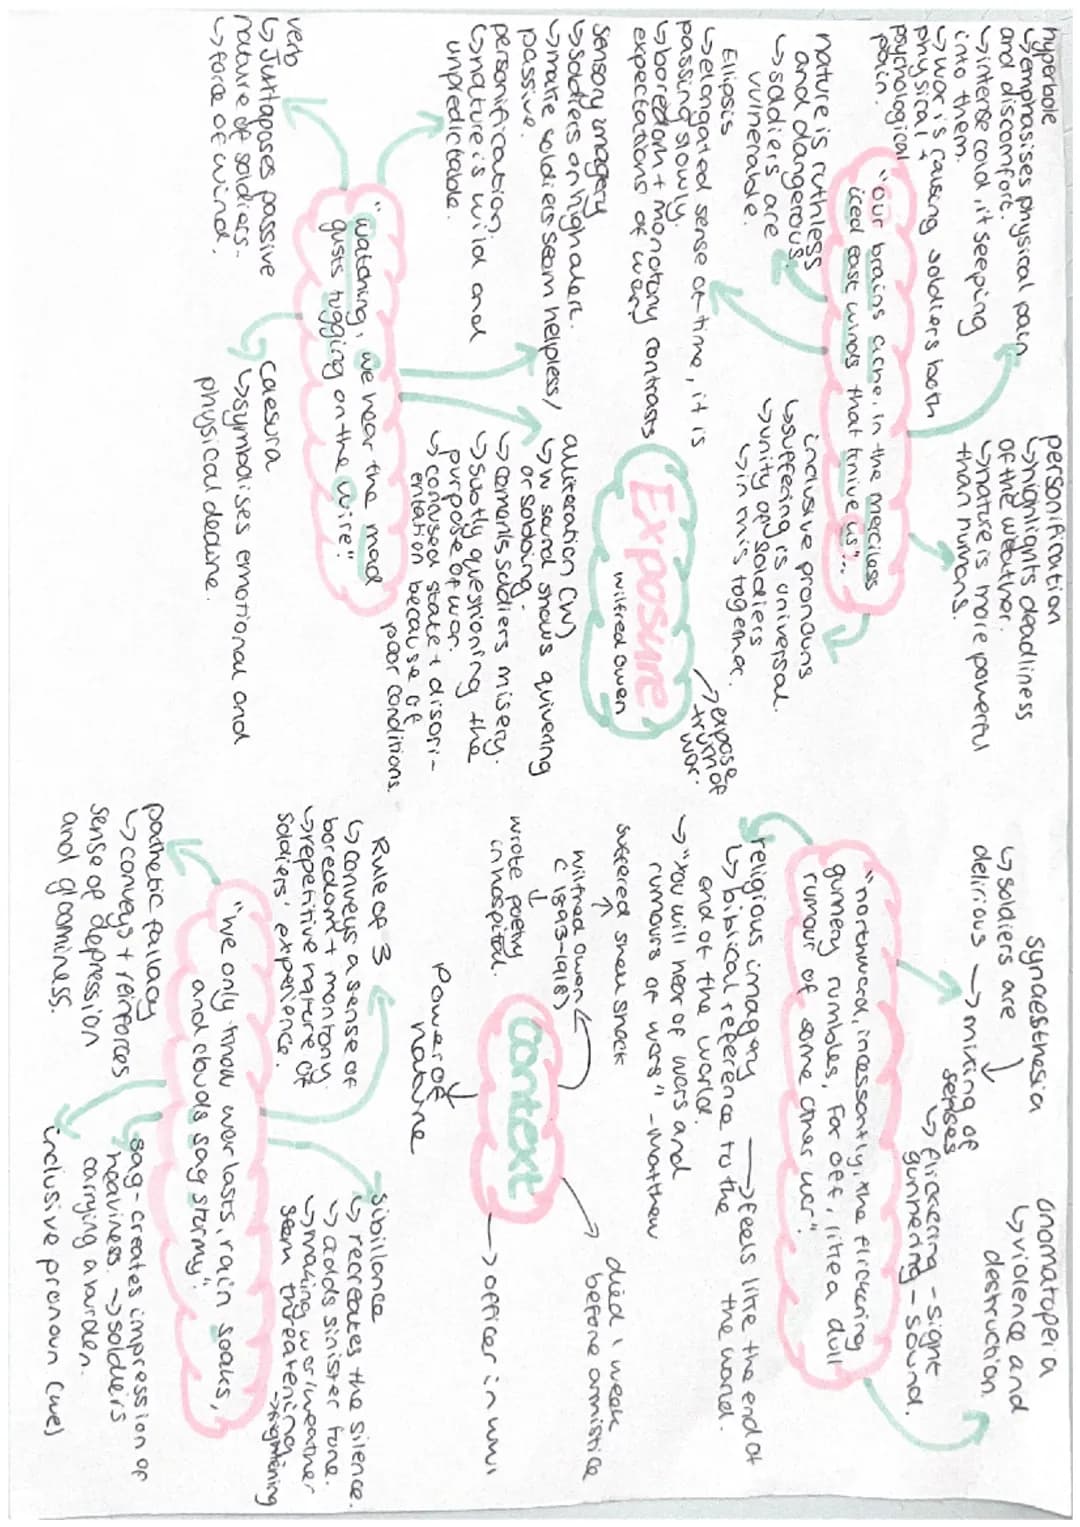 hyperbole
↳emphasises physical pain
and discomfort.
↳intense cold, it seeping
into them.
↳war is causing soldiers both
physical +
psychological
pain.
personification
↳highlights deadliness
of the weather.
↳nature is more powerful
than humans.
"our brains ache, in the merciless
iced east winds that knive us"...
nature is ruthless
and dangerous.
↳soldiers are
vulnerable.
Ellipsis
↳elongated sense of time, it is
passing slowly.
↳boredom + monotony contrasts
expectations of war.
inclusive pronouns
↳suffering is universal.
↳unity of soldiers
↳in this together.
Exposure
wilfred owen
→expose
truth of
war.
sensory imagery
↳soldiers on high alert.
↳make soldiers seem helpless/
passive.
personification.
↳nature is wild and
unpredictable.
alliteration (w)
↳w sound shows quivering
or sobbing.
↳cements soldiers misery.
↳subtly questioning the
purpose of war.
↳confused state + disori-
entation because of
poor conditions.
"watching, we hear the mad
gusts tugging on the wire"
verb
↳Juxtaposes passive
nature of soldiers.
↳force of wind.
caesura
↳symbolises emotional and
physical decline.
synaesthesia
↳soldiers are
delirious → mixing of
senses
↳flickering - sight
gunnering - sound.
onomatopeia
↳violence and
destruction.
"northward, incessantly, the flickering
gunnery rumbles, Far off, like a dull
rumour of some other war".
religious imagery → feels like the end of
the world.
↳biblical reference to the
end of the world.
→"You will hear of wars and
rumours of wars" - Matthew
suffered shell shock
wilfred owen
(1893-1918)
wrote poetry
in hospital.
context
died 1 week
before armistice
→ officer in ww1
Power of
nature
Rule of 3
↳conveys a sense of
boredom + montony.
↳repetitive nature of
soldiers' experience.
sibillance
↳recreates the silence.
↳adds sinister tone.
↳making war/weather
seem threatening
→frightening
"We only know war lasts, rain soaks,
and clouds sag stormy."
pathetic fallacy
↳conveys + reinforces
sense of depression
and gloominess.
sag - creates impression of
heaviness. →soldiers
carrying a burden.
inclusive pronoun (we)